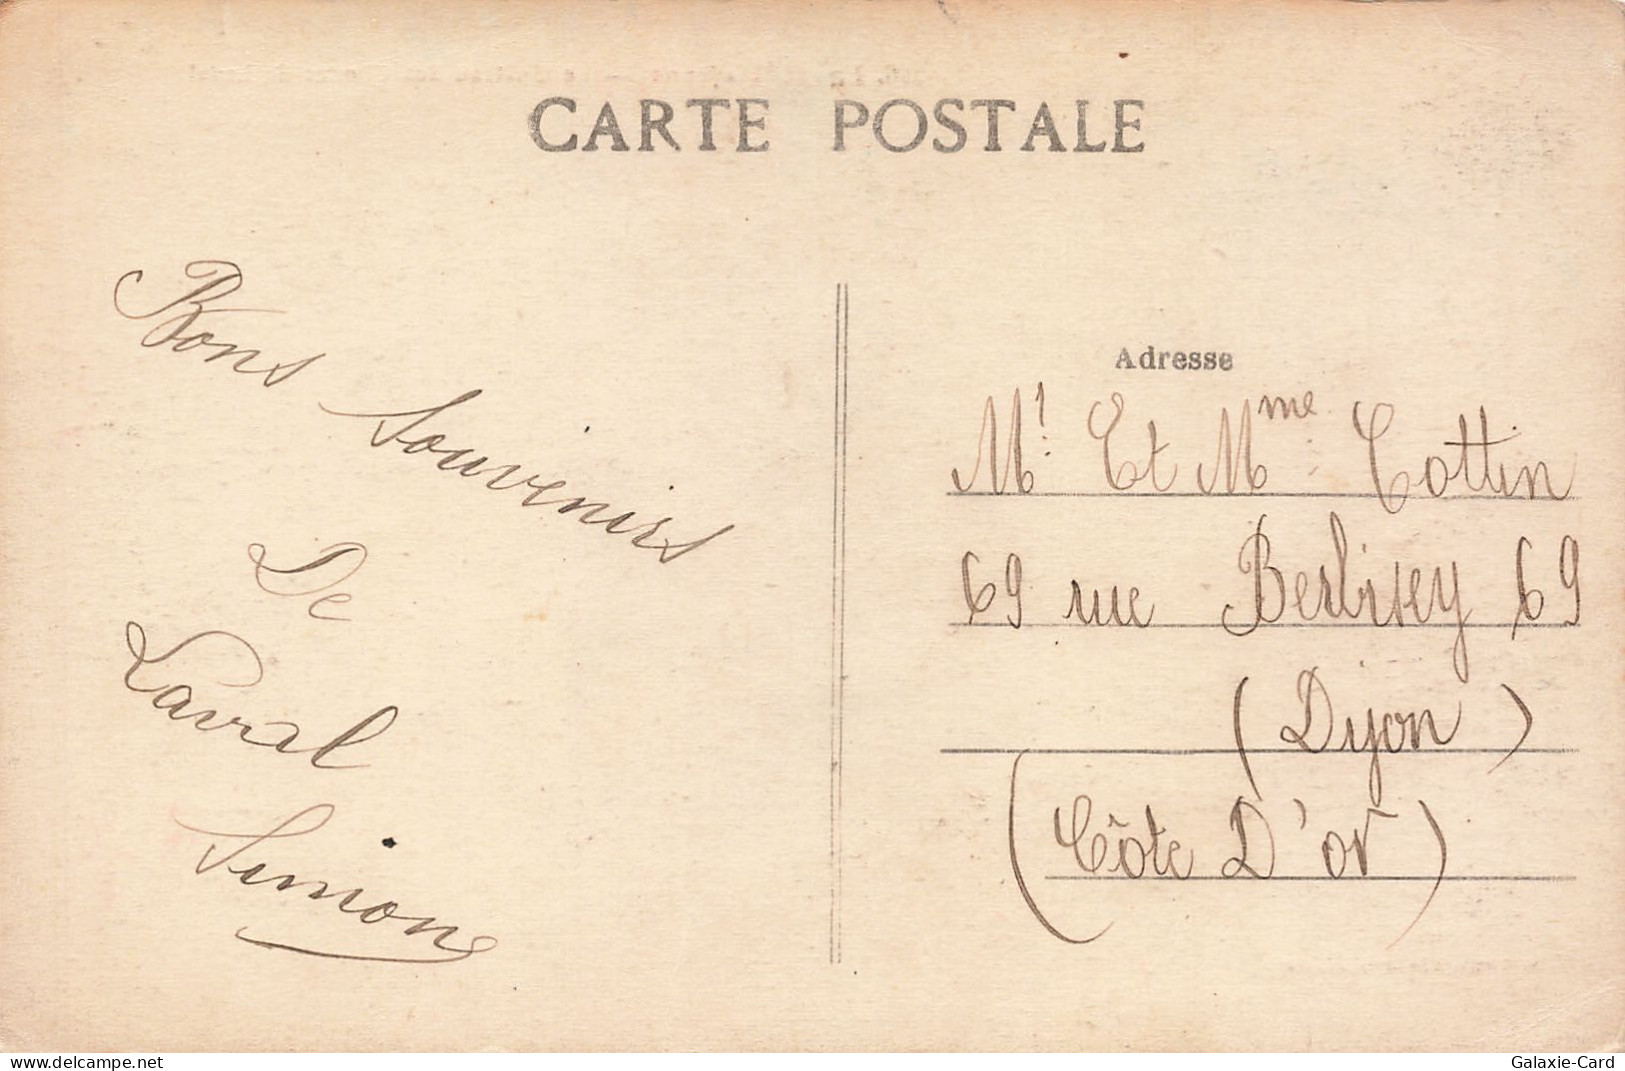 CARTE POSTALE
Bons Souvenirs
De
Laval
Simon
Adresse
Mr. Et Mme. Cottin
69 rue Berbisey 69
(Dijon)
(Côte D'or)
www.delcampe.net
Galaxie-Card